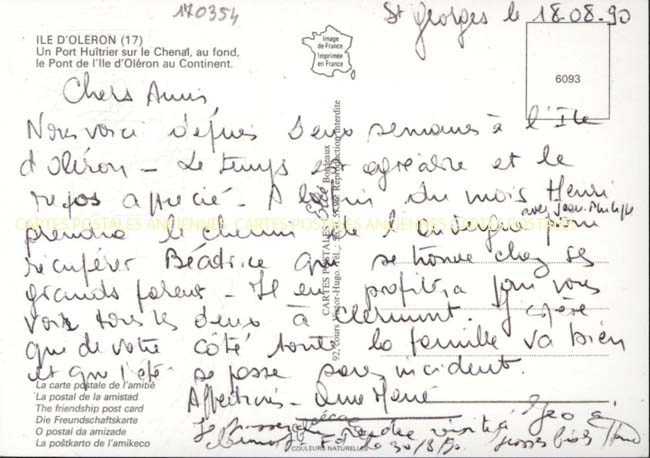 170354
St Georges le 18.08.90
ILE D'OLERON (17)
Un Port Huîtrier sur le Chenal, au fond,
le Pont de l'Ile d'Oléron au Continent.
Image
de France
Imprimée
en France
6093
Chers Amis,
Nous voici depuis deux semaines à l'Ile
d'oléron - Le temps est agréable et le
repos apprecié - A la fin du mois Henri
avec Jean-Philippe
prendra le chemin de l'Auvergne pour
récupérer Béatrice qui se trouve chez ses
grands parents - Il en profitera pour vous
voir tous les deux à Clermont. J'espère
que de votre côté toute la famille va bien
et que l'été se passe sans incident.
Affections - Anne Marie
CARTES POSTALES ANCIENNES CARTES POSTALES ANCIENNES CARTES POSTALES
La carte postale de l'amitié
La postal de la amistad
The friendship post card
Die Freundschaftskarte
O postal da amizade
La poŝtkarto de l'amikeco
rendre visite à Geo
le 30/8/90. grosses bises
COULEURS NATURELLES
CARTES POSTALES Bordeaux
92, cours Victor-Hugo. Reproduction interdite